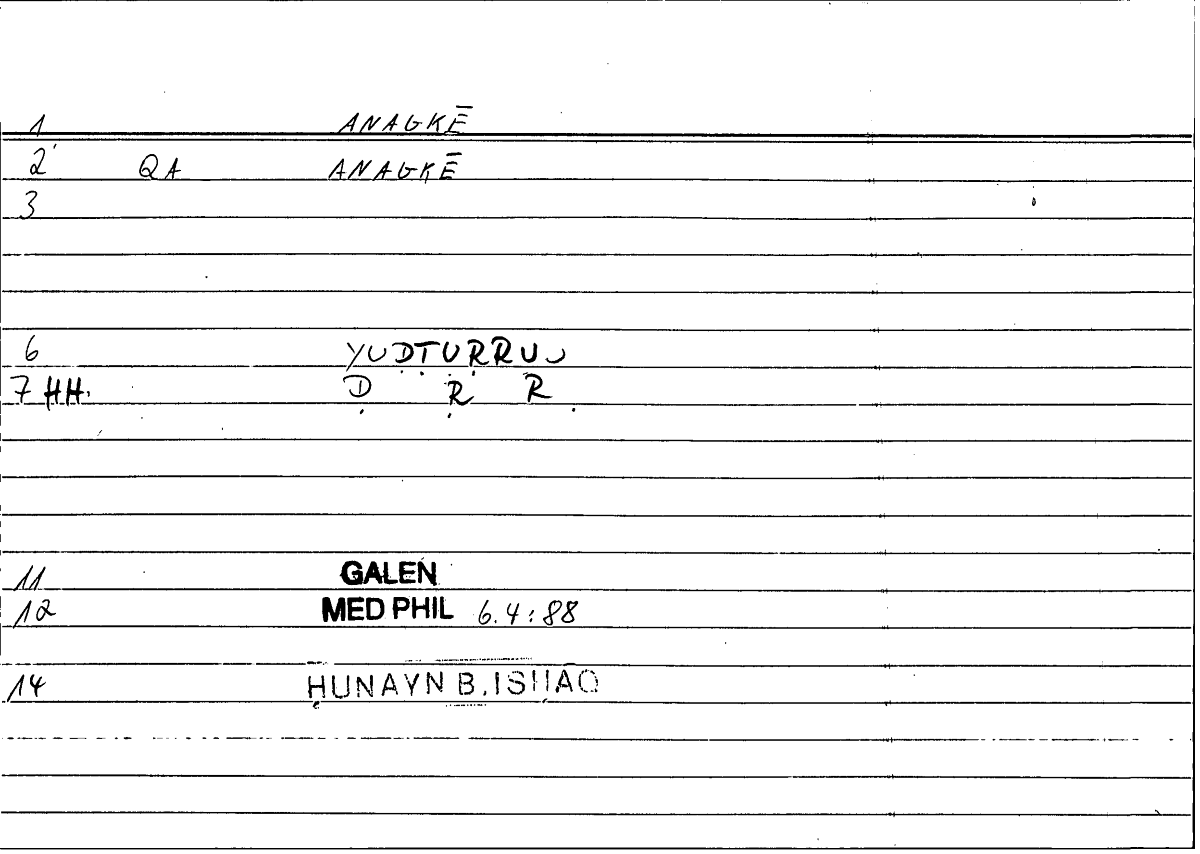 1 ANAGKĒ
2 QA ANAGKĒ
3
6 YUḌṬURRU
7 HH. Ḍ Ṛ R
11 GALEN
12 MED PHIL 6.4:88
14 ḤUNAYN B. ISḤAQ